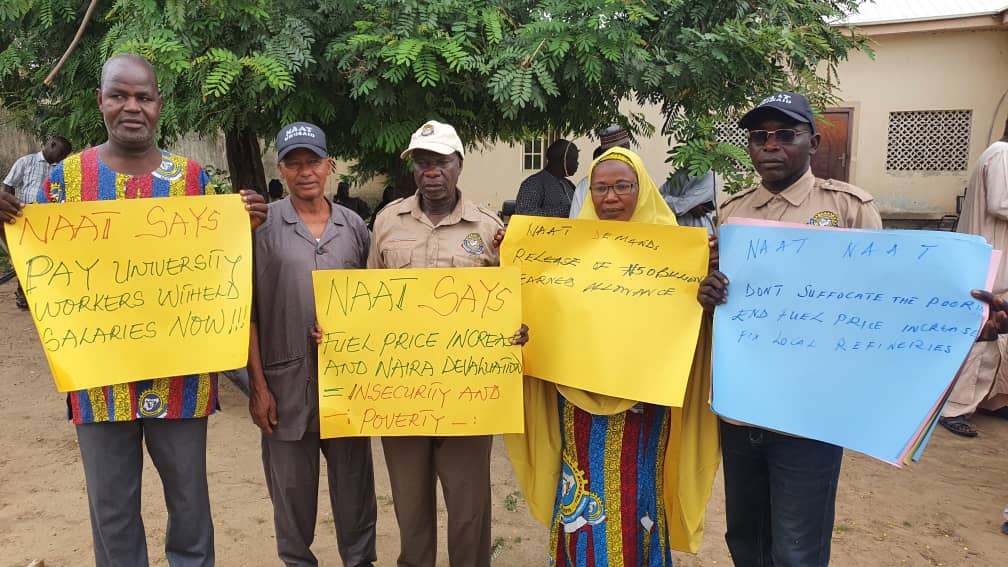 NAAT SAYS
PAY UNIVERSITY
WORKERS WITHELD
SALARIES NOW!!!
NAAT
NAAT SAYS
FUEL PRICE INCREASE
AND NAIRA DEVALUATION
= INSECURITY AND
POVERTY
NAAT DEMANDS
RELEASE OF ₦50BILLION
EARNED ALLOWANCE
NAAT
NAAT NAAT
DONT SUFFOCATE THE POOR!!
END FUEL PRICE INCREASE
FIX LOCAL REFINCIRIES